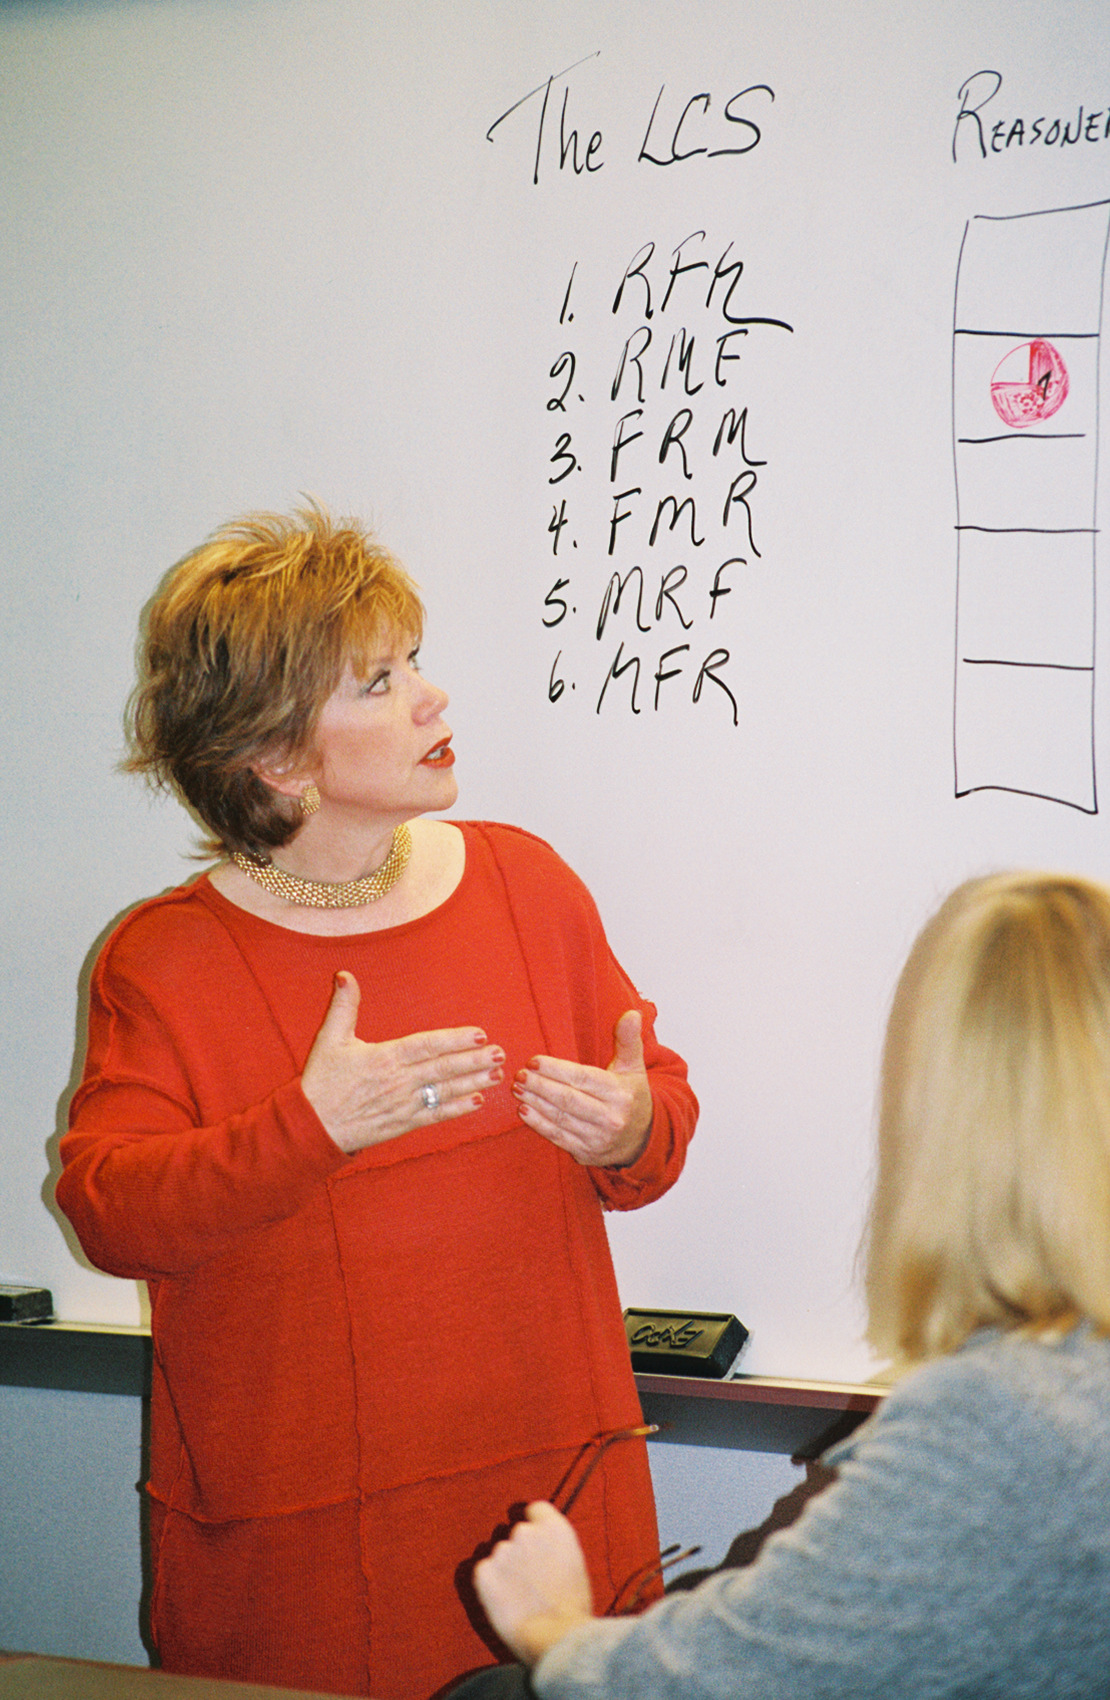 The LCS
1. RFM
2. RMF
3. FRM
4. FMR
5. MRF
6. MFR
REASONER
EXPO